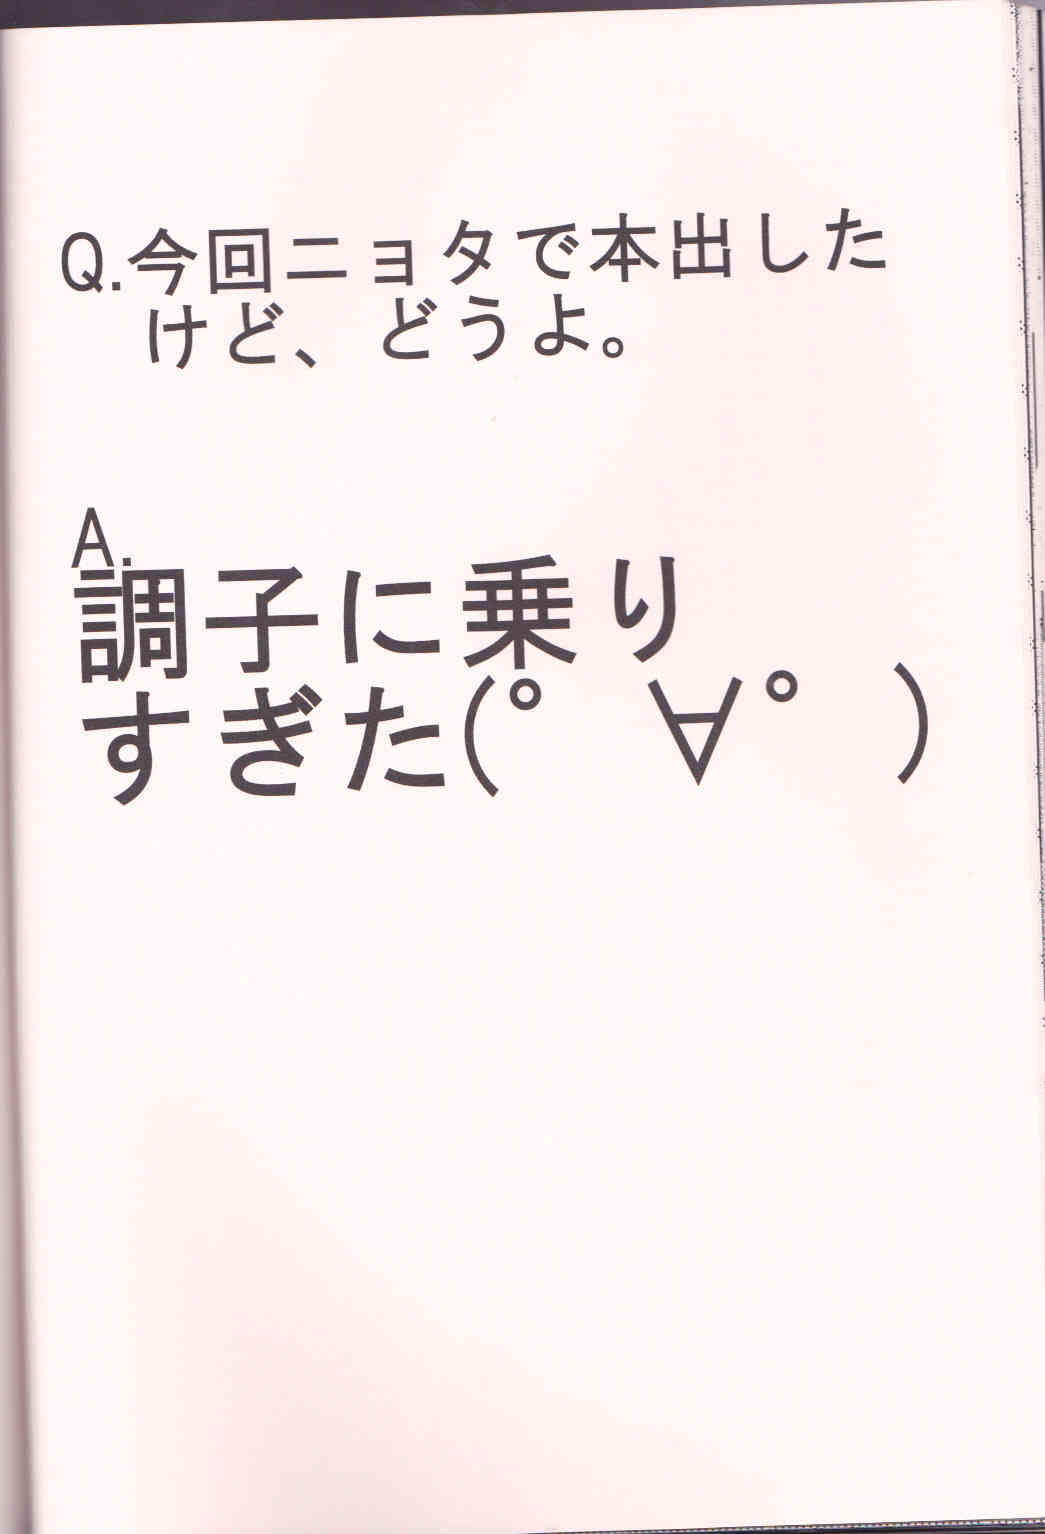 Q.今回ニョタで本出した
けど、どうよ。
A.
調子に乗り
すぎた(ﾟ∀ﾟ)